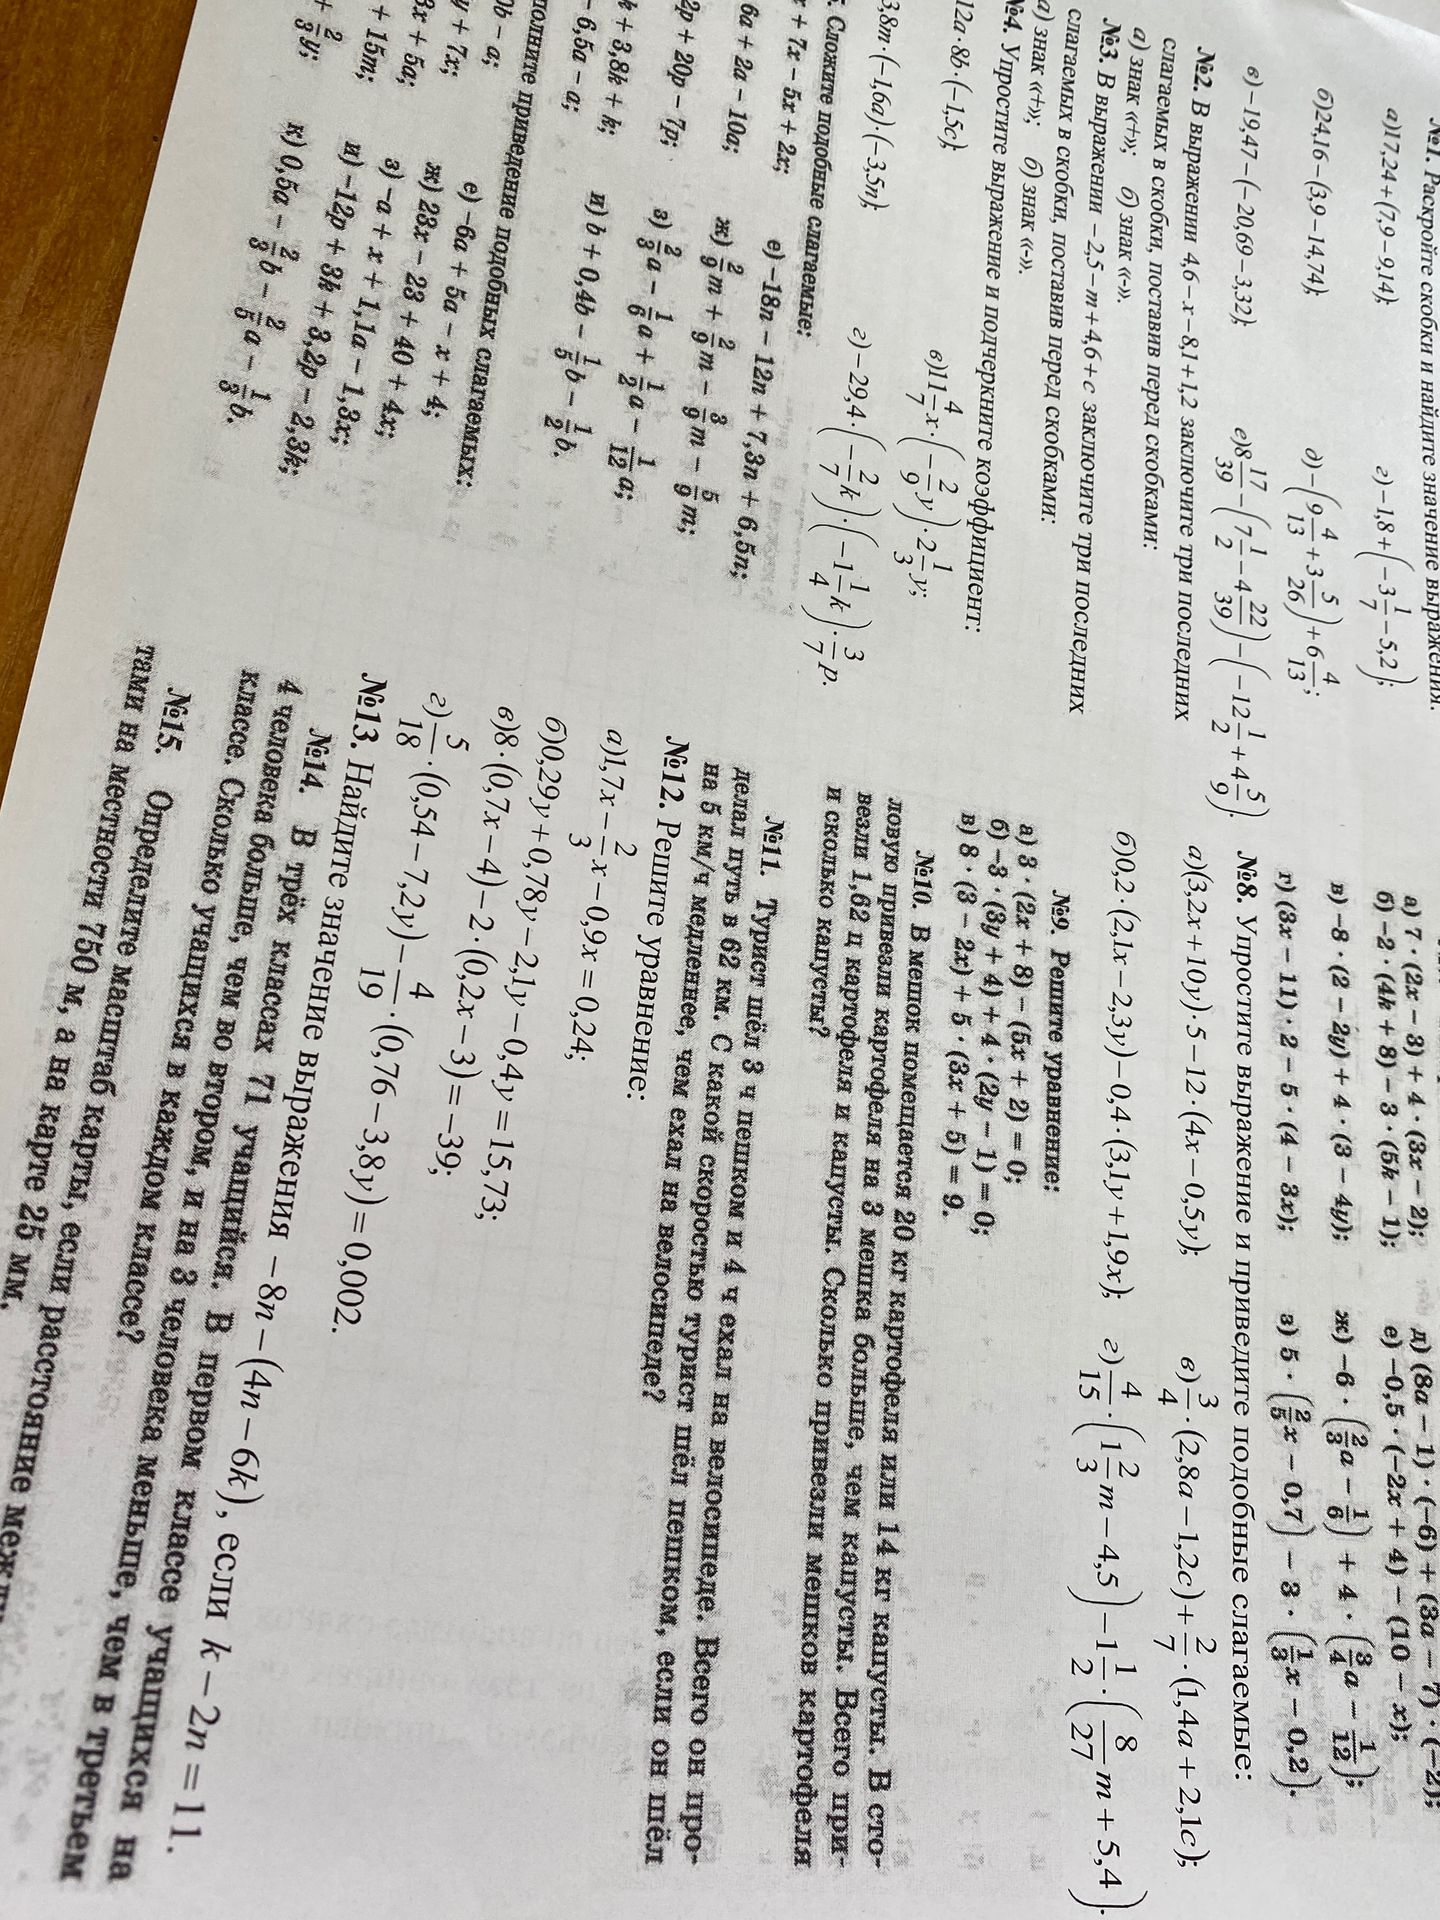 №1. Раскройте скобки и найдите значение выражения.
а)17,24+(7,9−9,14);
г)−1,8+(−3 1/7−5,2);
б)24,16−(3,9−14,74);
д)−(9 4/13+3 5/26)+6 4/13;
в)−19,47−(−20,69−3,32);
е)8 17/39−(7 1/2−4 22/39)−(−12 1/2+4 5/9).
№2. В выражении 4,6−x−8,1+1,2 заключите три последних
слагаемых в скобки, поставив перед скобками:
а) знак «+»; б) знак «-».
№3. В выражении −2,5−m+4,6+c заключите три последних
слагаемых в скобки, поставив перед скобками:
а) знак «+»; б) знак «-».
№4. Упростите выражение и подчеркните коэффициент:
12a·8b·(−1,5c);
в)11 4/7 x·(−2/9 y)·2 1/3 y;
3,8m·(−1,6a)·(−3,5n);
г)−29,4·(−2/7 k)·(−1 1/4 k)·3/7 p.
Сложите подобные слагаемые:
+ 7x − 5x + 2x;
е) −18n − 12n + 7,3n + 6,5n;
6a + 2a − 10a;
ж) 2/9 m + 2/9 m − 3/9 m − 5/9 m;
2p + 20p − 7p;
з) 2/3 a − 1/6 a + 1/2 a − 1/12 a;
k + 3,8k + k;
и) b + 0,4b − 1/5 b − 1/2 b.
− 6,5a − a;
полните приведение подобных слагаемых:
b − a;
е) −6a + 5a − x + 4;
y + 7x;
ж) 23x − 23 + 40 + 4x;
3x + 5a;
з) −a + x + 1,1a − 1,3x;
+ 15m;
и) −12p + 3k + 3,2p − 2,3k;
+ 2/3 y;
к) 0,5a − 2/3 b − 2/5 a − 1/3 b.
а) 7 · (2x − 3) + 4 · (3x − 2);
д) (8a − 1) · (−6) + (3a − 7) · (−2);
б) −2 · (4k + 8) − 3 · (5k − 1);
е) −0,5 · (−2x + 4) − (10 − x);
в) −8 · (2 − 2y) + 4 · (3 − 4y);
ж) −6 · (2/3 a − 1/6) + 4 · (3/4 a − 1/12);
г) (3x − 11) · 2 − 5 · (4 − 3x);
з) 5 · (2/5 x − 0,7) − 3 · (1/3 x − 0,2).
№8. Упростите выражение и приведите подобные слагаемые:
а)(3,2x+10y)·5−12·(4x−0,5y);
в)3/4·(2,8a−1,2c)+2/7·(1,4a+2,1c);
б)0,2·(2,1x−2,3y)−0,4·(3,1y+1,9x);
г)4/15·(1 2/3 m−4,5)−1 1/2·(8/27 m+5,4).
№9. Решите уравнение:
а) 3 · (2x + 8) − (5x + 2) = 0;
б) −3 · (3y + 4) + 4 · (2y − 1) = 0;
в) 8 · (3 − 2x) + 5 · (3x + 5) = 9.
№10. В мешок помещается 20 кг картофеля или 14 кг капусты. В сто-
ловую привезли картофеля на 3 мешка больше, чем капусты. Всего при-
везли 1,62 ц картофеля и капусты. Сколько привезли мешков картофеля
и сколько капусты?
№11. Турист шёл 3 ч пешком и 4 ч ехал на велосипеде. Всего он про-
делал путь в 62 км. С какой скоростью турист шёл пешком, если он шёл
на 5 км/ч медленнее, чем ехал на велосипеде?
№12. Решите уравнение:
а)1,7x−2/3 x−0,9x=0,24;
б)0,29y+0,78y−2,1y−0,4y=15,73;
в)8·(0,7x−4)−2·(0,2x−3)=−39;
г)5/18·(0,54−7,2y)−4/19·(0,76−3,8y)=0,002.
№13. Найдите значение выражения −8n−(4n−6k), если k−2n=11.
№14. В трёх классах 71 учащийся. В первом классе учащихся на
4 человека больше, чем во втором, и на 3 человека меньше, чем в третьем
классе. Сколько учащихся в каждом классе?
№15. Определите масштаб карты, если расстояние между
тами на местности 750 м, а на карте 25 мм.